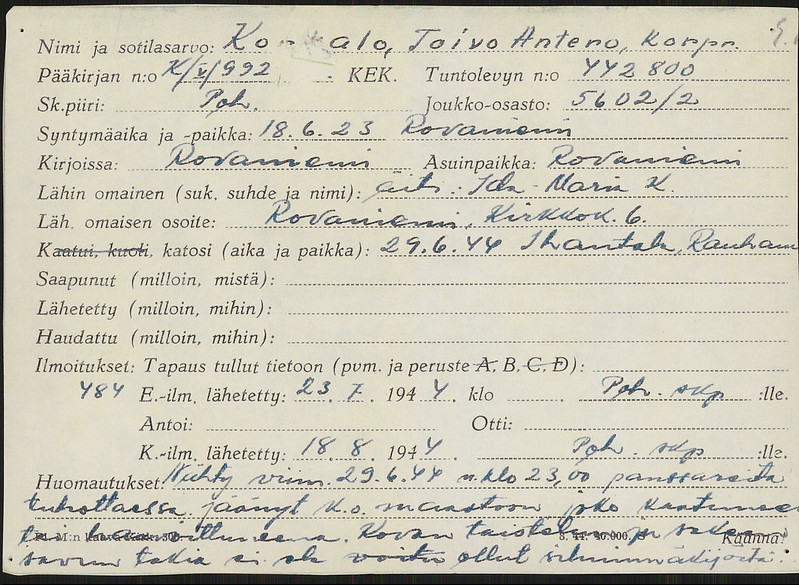 Nimi ja sotilasarvo: Ko alo, Toivo Antero, korpr.
Pääkirjan n:o K/V/992 . KEK. Tuntolevyn n:o 442800
Sk.piiri: Poh. Joukko-osasto: 5602/2
Syntymäaika ja -paikka: 18.6.23 Rovaniemi
Kirjoissa: Rovaniemi Asuinpaikka: Rovaniemi
Lähin omainen (suk. suhde ja nimi): äiti: Ida-Maria K.
Läh. omaisen osoite: Rovaniemi, Kirkkok. 6.
Kaatui, kuoli, katosi (aika ja paikka): 29.6.44 Ihantala,
Saapunut (milloin, mistä):
Lähetetty (milloin, mihin):
Haudattu (milloin, mihin):
Ilmoitukset: Tapaus tullut tietoon (pvm. ja peruste A, B, C, D):
484 E.-ilm. lähetetty: 23.7.1944. klo Poh. skp :lle.
Antoi: Otti:
K.-ilm. lähetetty: 18.8.1944. Poh. skp :lle.
Huomautukset: Nähty viim. 29.6.44 n. klo 23,00 panssareita
tuhottaessa jäänyt k.o. maastoon joko kaatuneena
tai haavoittuneena. Kovan taistelun ja sakean Käännä!
savun takia ei ole voitu ollut silminnäkijöitä.